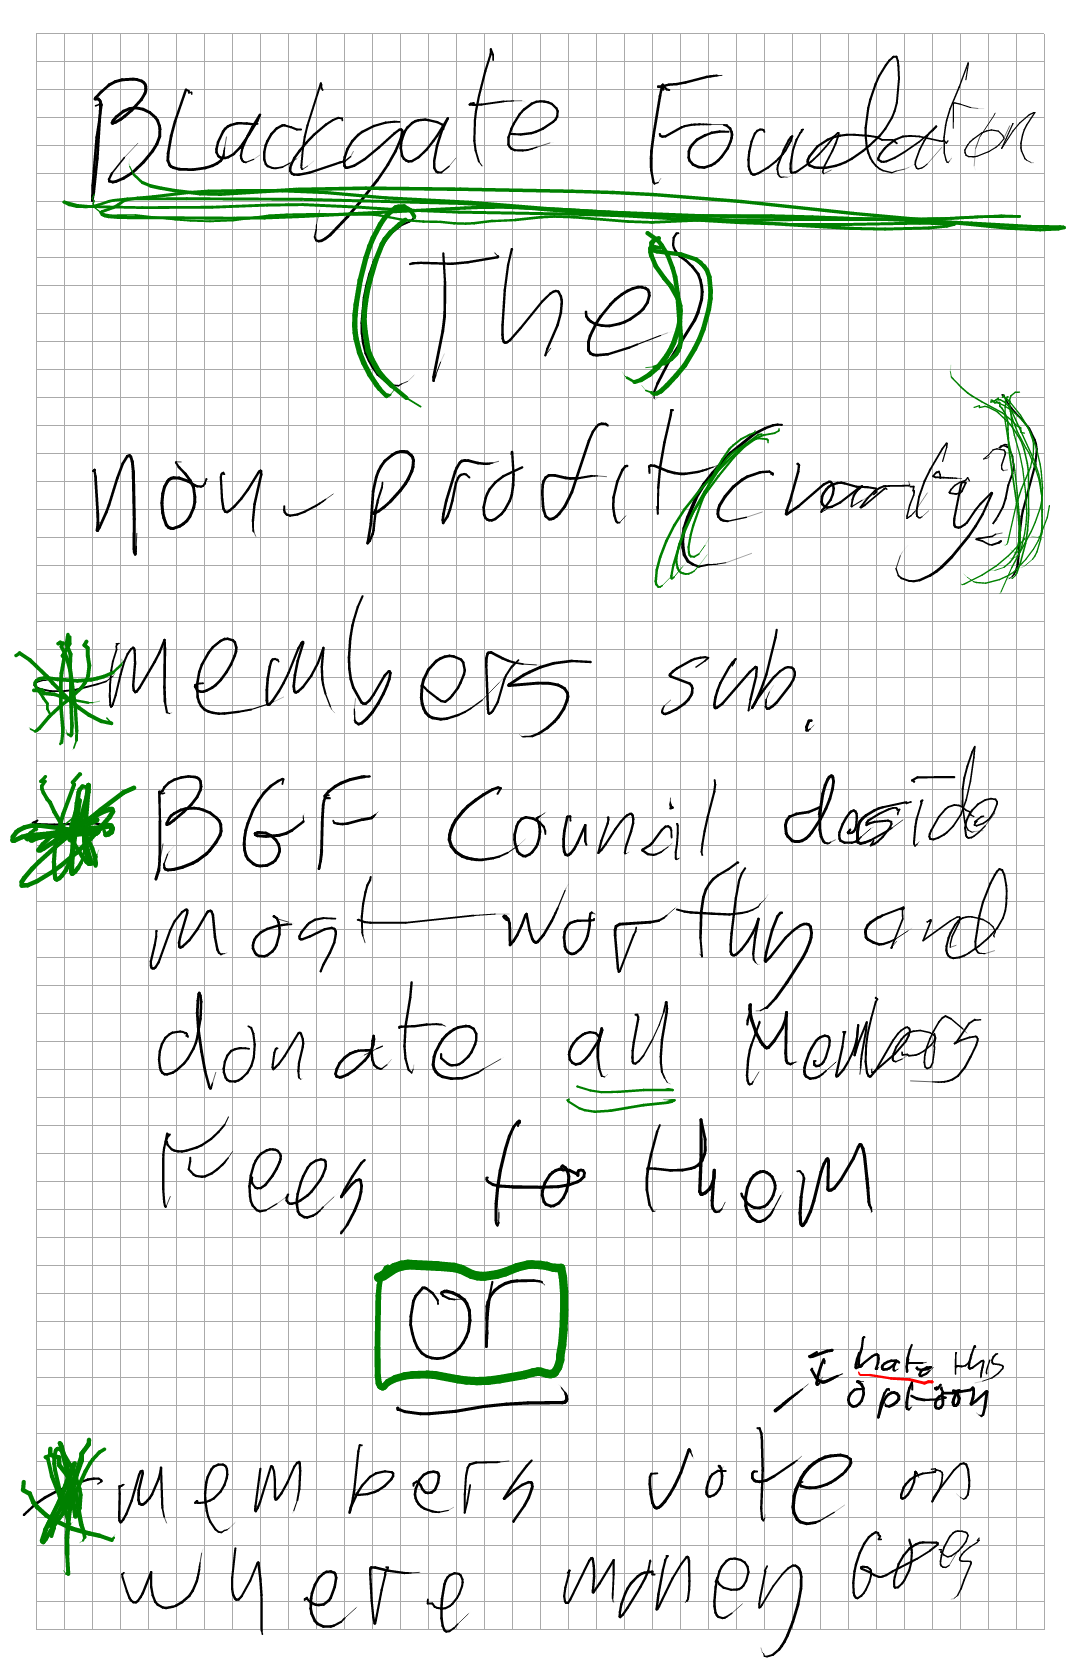 Blackgate Foundation
(The)
non-profit (charity?)
* members sub.
* BGF Council deside
most worthy and
donate all Members
Fees to them
or
I hate this
option
* members vote on
where money Goes